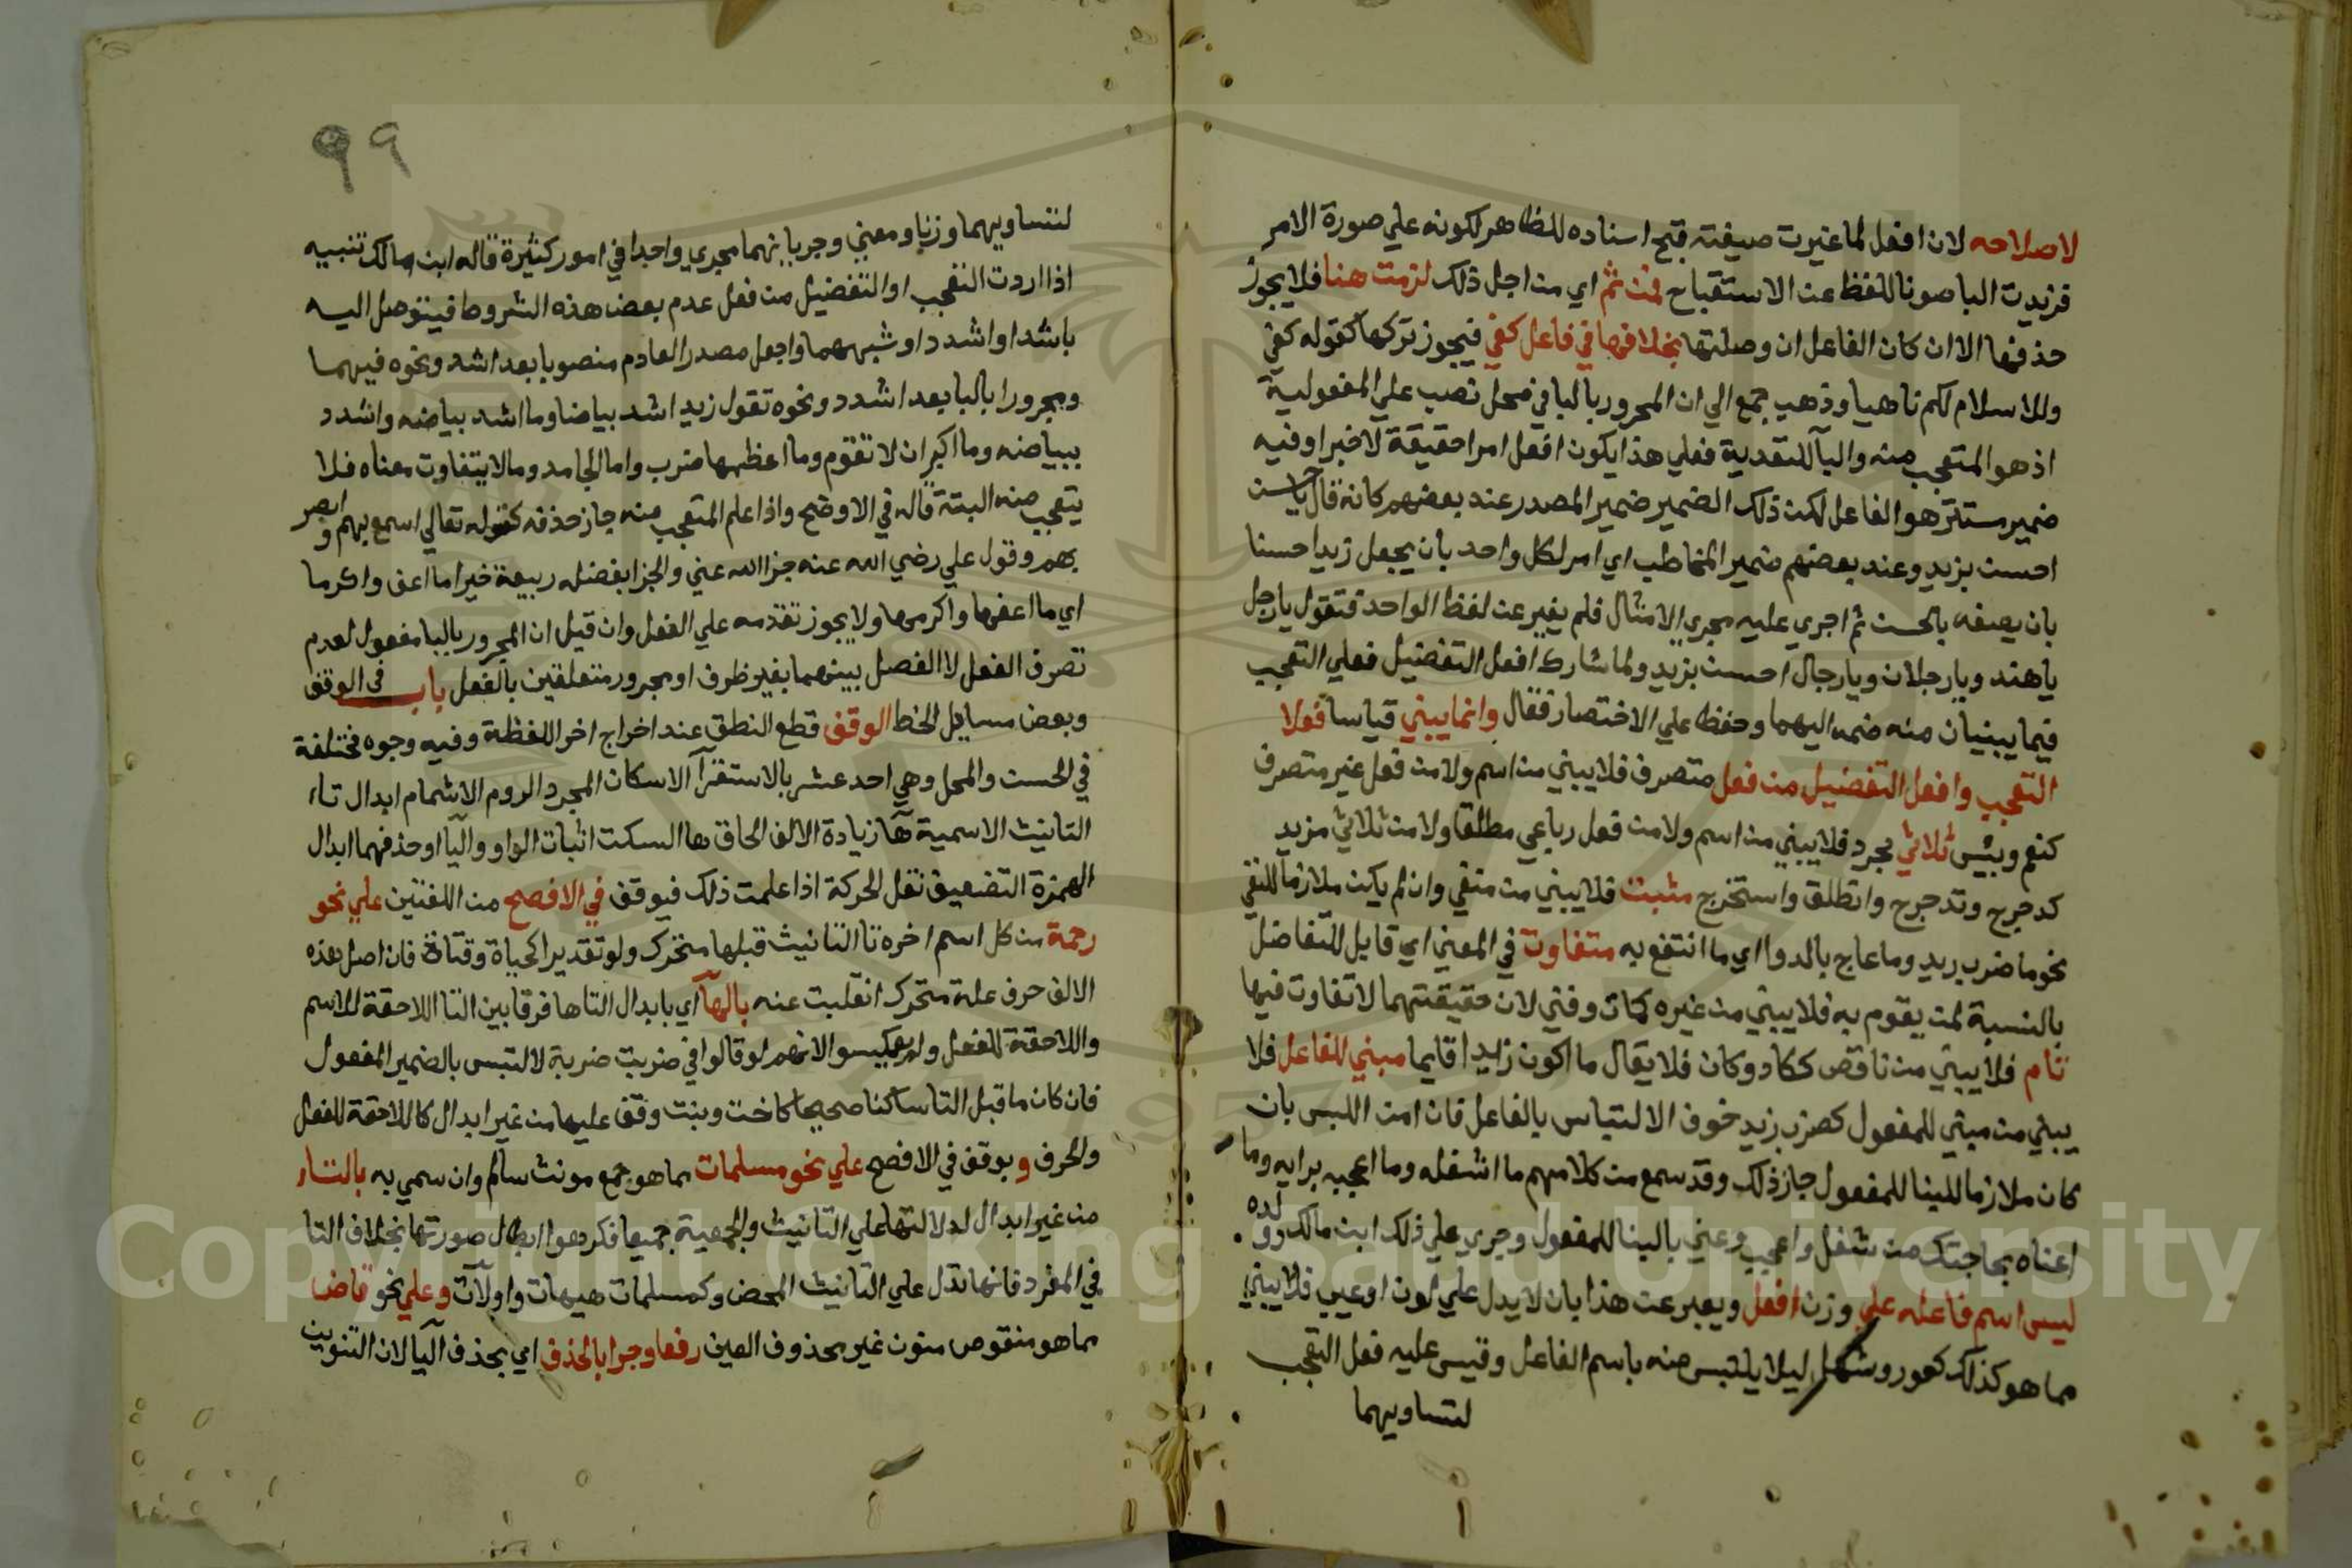 لاصلاحه لان افعل لما غيرت صيغته قبح اسناده للظاهر لكونه علي صورة الامر
فزيدت البا صونا للفظ عن الاستقباح فمن ثم اي من اجل ذلك لزمت هنا فلا يجوز
حذفها الا ان كان الفاعل ان وصلتها بخلافها في فاعل كفي فيجوز تركها كقوله كفي
وللاسلام لكم ناهيا وذهب جمع الي ان المجرور بالبا في محل نصب علي المفعولية
اذ هو المتعجب منه والبآ للتعدية فعلي هذا يكون افعل امرا حقيقة لا خبرا وفيه
ضمير مستتر هو الفاعل لكن ذلك الضمير ضمير المصدر عند بعضهم كانه قال يا حسن
احسن بزيد وعند بعضهم ضمير المخاطب اي امر لكل واحد بان يجعل زيدا حسنا
بان يصفه بالحسن ثم اجري عليه مجري الامثال فلم يغير عن لفظ الواحد فتقول يا رجل
يا هند ويا رجلان ويا رجال احسن بزيد ولما شارك افعل التفضيل فعلي التعجب
فيما يبنيان منه ضمه اليهما وحفظه علي الاختصار فقال وانما يبني قياسا فعلا
التعجب وافعل التفضيل من فعل متصرف فلا يبني من اسم ولا من فعل غير متصرف
كنعم وبئس ثلاثي مجرد فلا يبني من اسم ولا من فعل رباعي مطلقا ولا من ثلاثي مزيد
كدحرج وتدحرج وانطلق واستخرج مثبت فلا يبني من منفي وان لم يكن ملازما للنفي
نحو ما ضرب زيد وما عاج بالدوا اي ما انتفع به متفاوت في المعني اي قابل للتفاضل
بالنسبة لمن يقوم به فلا يبني من غيره كمات وفني لان حقيقتهما لا تفاوت فيها
تام فلا يبني من ناقص ككاد وكان فلا يقال ما اكون زيدا قايما مبني للفاعل فلا
يبني من مبني للمفعول كضرب زيد خوف الالتباس بالفاعل فان امن اللبس بان
كان ملازما للبنا للمفعول جاز ذلك وقد سمع من كلامهم ما اشغله وما اعجبه برايه وما
اعناه بحاجتك من شغل واعجب وعني بالبنا للمفعول وجري علي ذلك ابن مالك وولده
ليس اسم فاعله علي وزن افعل ويعبر عن هذا بان لا يدل علي لون او عيب فلا يبني
مما هو كذلك كعور وشهل ليلا يلتبس منه باسم الفاعل وقيس عليه فعل التعجب
لتساويهما
٩٩
لتساويهما وزنا ومعني وجريانهما مجري واحدا في امور كثيرة قاله ابن مالك تنبيه
اذا اردت التعجب او التفضيل من فعل عدم بعض هذه الشروط فيتوصل اليه
باشد او اشدد او شبههما واجعل مصدر العادم منصوبا بعد اشد ونحوه فيهما
ومجرورا بالبا بعد اشدد ونحوه تقول زيد اشد بياضا وما اشد بياضه واشدد
ببياضه وما اكبر ان لا تقوم وما اعظمها ضرب واما الجامد وما لا يتفاوت معناه فلا
يتعجب منه البتة قاله في الاوضح واذا علم المتعجب منه جاز حذفه كقوله تعالي اسمع بهم وابصر
بهم وقول علي رضي الله عنه جزا الله عني والجزا بفضله ربيعة خيرا ما اعف واكرما
اي ما اعفها واكرمها ولا يجوز تقدمه علي الفعل وان قيل ان المجرور بالبا مفعول لعدم
تصرف الفعل لا الفصل بينهما بغير ظرف او مجرور متعلقين بالفعل باب في الوقف
وبعض مسايل الخط الوقف قطع النطق عند اخراج اخر اللفظة وفيه وجوه مختلفة
في الحسن والمحل وهي احد عشر بالاستقرآ الاسكان المجرد الروم الاشمام ابدال تاء
التانيث الاسمية هآ زيادة الالف الحاق ها السكت اثبات الواو واليا او حذفهما ابدال
الهمزة التضعيف نقل الحركة اذا علمت ذلك فيوقف في الافصح من اللغتين علي نحو
رحمة من كل اسم اخره تا التانيث قبلها متحرك ولو تقديرا كحياة وقتاة فان اصل هذه
الالف حرف علة متحرك انقلبت عنه بالهآ اي بابدال التا ها فرقا بين التا اللاحقة للاسم
واللاحقة للفعل ولم يعكسوا لانهم لو قالوا في ضربت ضربة لالتبس بالضمير المفعول
فان كان ما قبل التا ساكنا صحيحا كاخت وبنت وقف عليها من غير ابدال كاللاحقة للفعل
والحرف ويوقف في الافصح علي نحو مسلمات مما هو جمع مونث سالم وان سمي به بالتاء
من غير ابدال لدلالتها علي التانيث والجمعية جميعا فكرهوا ابطال صورتها بخلاف التا
في المفرد فانها تدل علي التانيث المحض وكمسلمات هيهات واولات وعلي نحو قاض
مما هو منقوص منون غير محذوف العين رفعا وجرا بالحذف اي بحذف اليا لان التنوين
Copyright © King Saud University